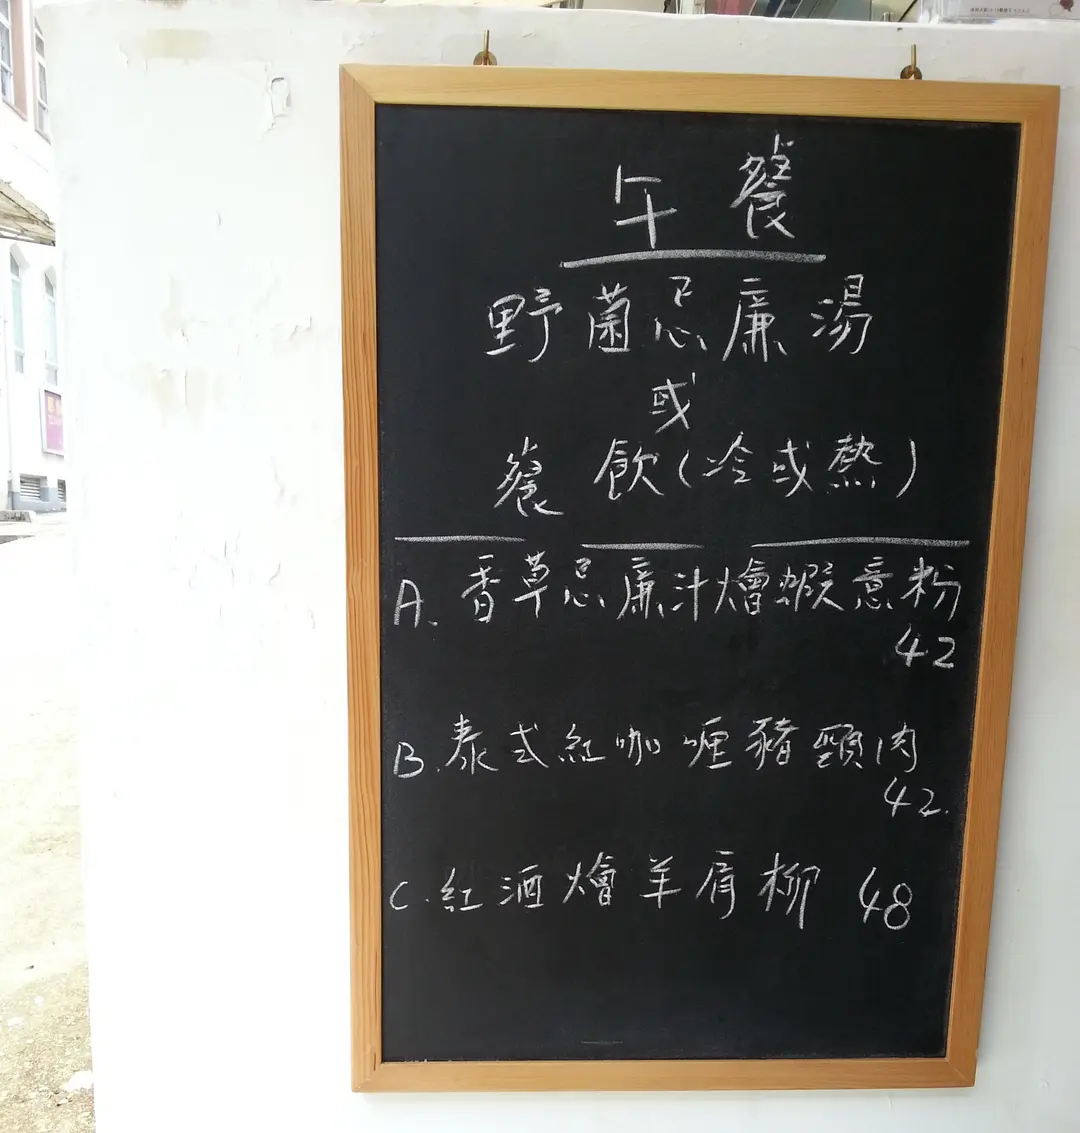 午餐
野菌忌廉湯
或
餐飲(冷或熱)
A. 香草忌廉汁燴蝦意粉
42
B. 泰式紅咖喱豬頸肉
42.
C. 紅酒燴羊肩柳 48